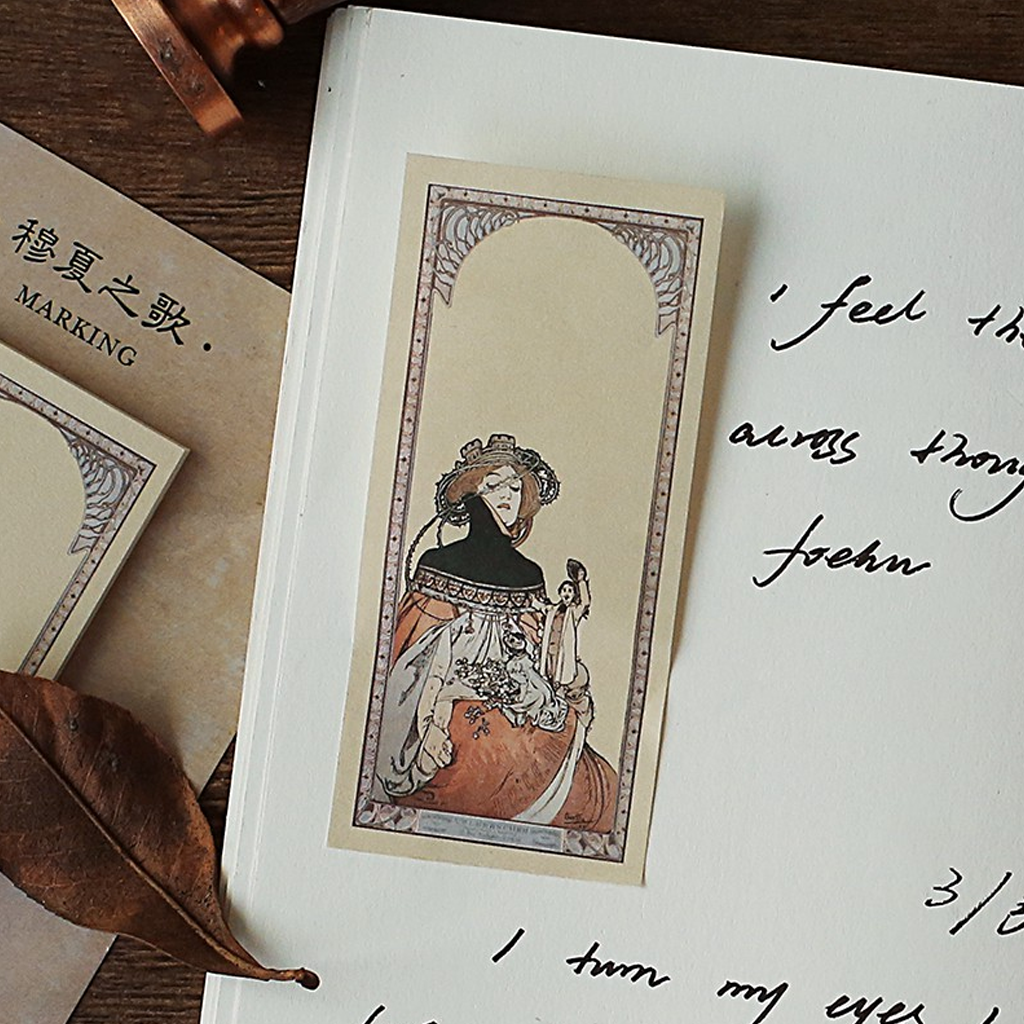 穆夏之歌·
MARKING
I feel
across
foehn
3/
I turn my eyes